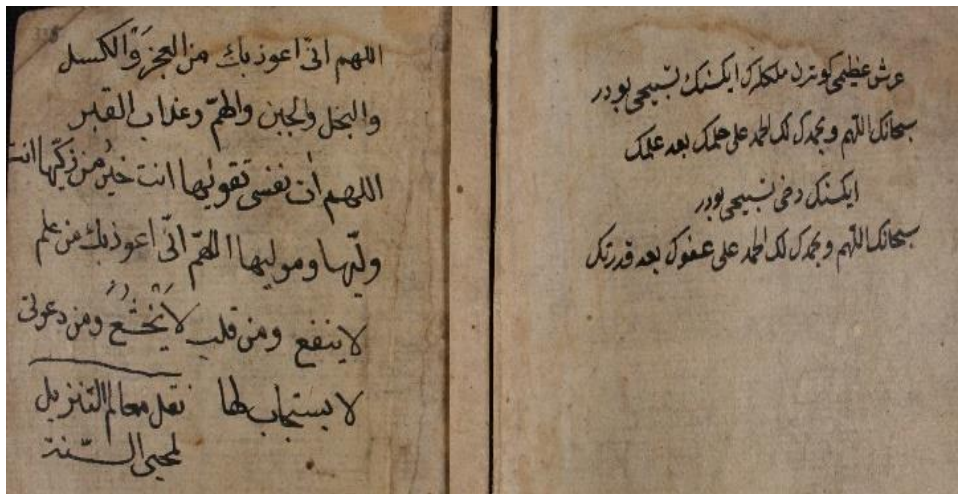 عرش عظيمی کوترن ملکلرك ایکسنك تسبیحی بودر
سبحانك اللهم وبحمدك لك الحمد على حلمك بعد علمك
ایکسنك دخی تسبیحی بودر
سبحانك اللهم وبحمدك لك الحمد على عفوك بعد قدرتك
اللهم انّى اعوذ بك من العجز وَالكسل
والبخل والجبن والهمّ وعذاب القبر
اللهم آت نفسى تقويٰها انت خيرُ من زكّيها انت
وليّها وموليها اللهمّ انّى اعوذ بك من علم
لا ينفع ومن قلب لا يَخْشَعُ ومن دعوة
لا يستجاب لها نقل معالم التنزيل
لمحيى السّنة